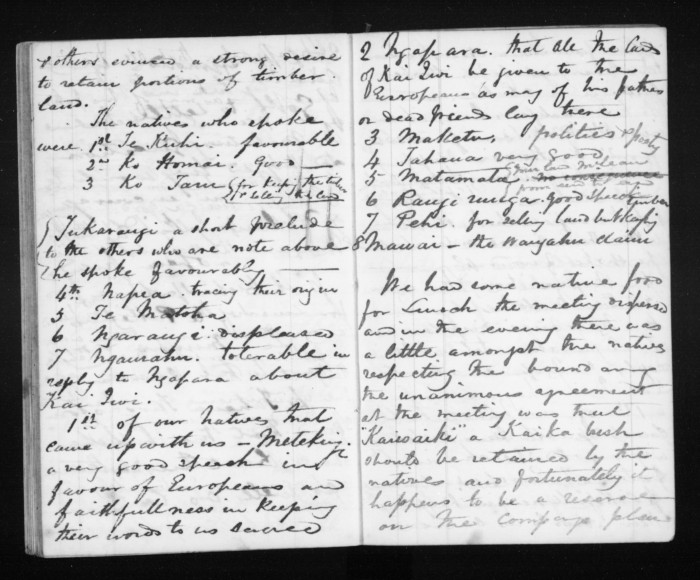 & others evinced a strong desire
to retain portions of timber
land.
The natives who spoke
were 1st Te Kuhi. favourable
2nd Ko Homai. good
3 Ko Taru for keeping the timber
& selling the land
Tukarangi a short prelude
to the others who are note above
he spoke favourably
4th Napea. tracing their origin
5 Te
6 Ngarangi. displeased
7 Ngaurahu. tolerable in
reply to Ngapara about
Kai Iwi.
1st of our natives that
came up with us - Metekingi
a very good speech in
favour of Europeans and
faithfullness in keeping
their words to us sacred
2 Ngapara. that all the land
of Kai Iwi be given to the
Europeans as many of his fathers
or dead friends lay there
3 Maketu, politics & party
4 Tahana very good
5 Matamata
6 Rangi runga. good speech timber
7 Pehi. for selling land but keeping
8 Mawai - the Wangahu claim
We had some native food
for Lunch the meeting dispersed
and in the evening there was
a little amongst the natives
respecting the boundary
the unanimous agreement
at the meeting was that
"Kaiwaiki" a Kaika bush
should be retained by the
natives and fortunately it
happens to be a reserve
on the Companys plan